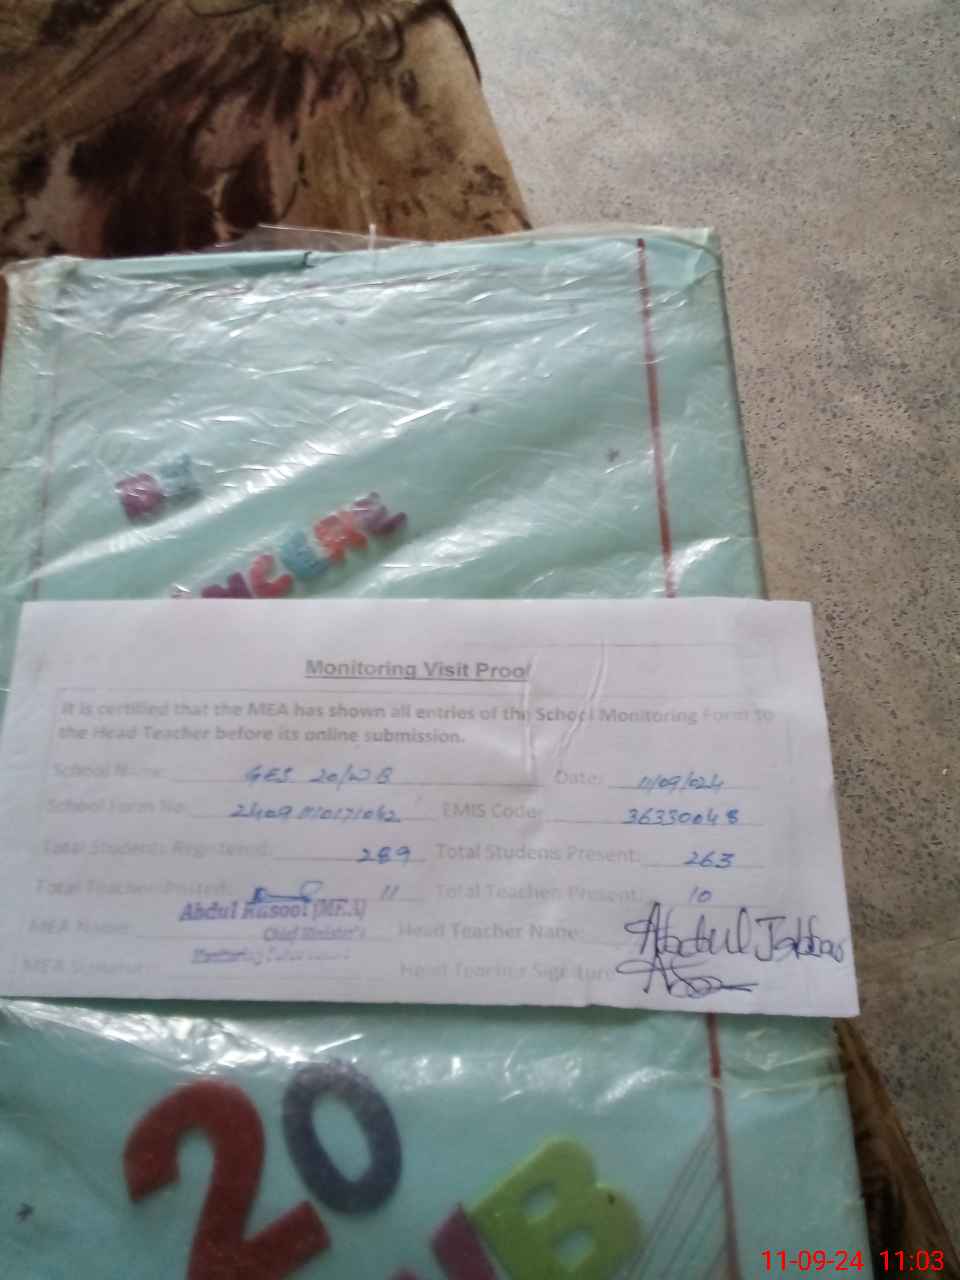 Monitoring Visit Proof
It is certified that the MEA has shown all entries of the School Monitoring Form to
the Head Teacher before its online submission.
School Name: GES 20/WB Date: 11/09/024
School Form No: EMIS Code: 36330048
Total Students Registered: 289 Total Students Present: 263
Total Teacher Posted: 11 Total Teacher Present: 10
Abdul Rasool (MEA)
Chief Minister's
MEA Name: Head Teacher Name: Abdul Jabbar
MEA Signature: Head Teacher Signature
20
B
11-09-24 11:03